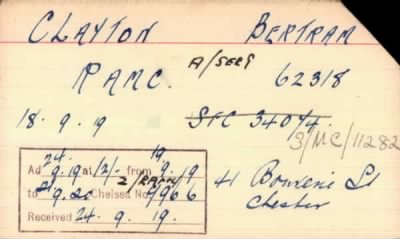 CLAYTON BERTRAM
RAMC. A/SERGT 62318
18. 9. 9 SFC 340/4
3/MC/11282
24. 19.
Ad 9.19 at 2/- from 9/19
2/RAMC/
to 9.20 Chelsea No. 7966
Received 24. 9. 19.
41 St
Chester